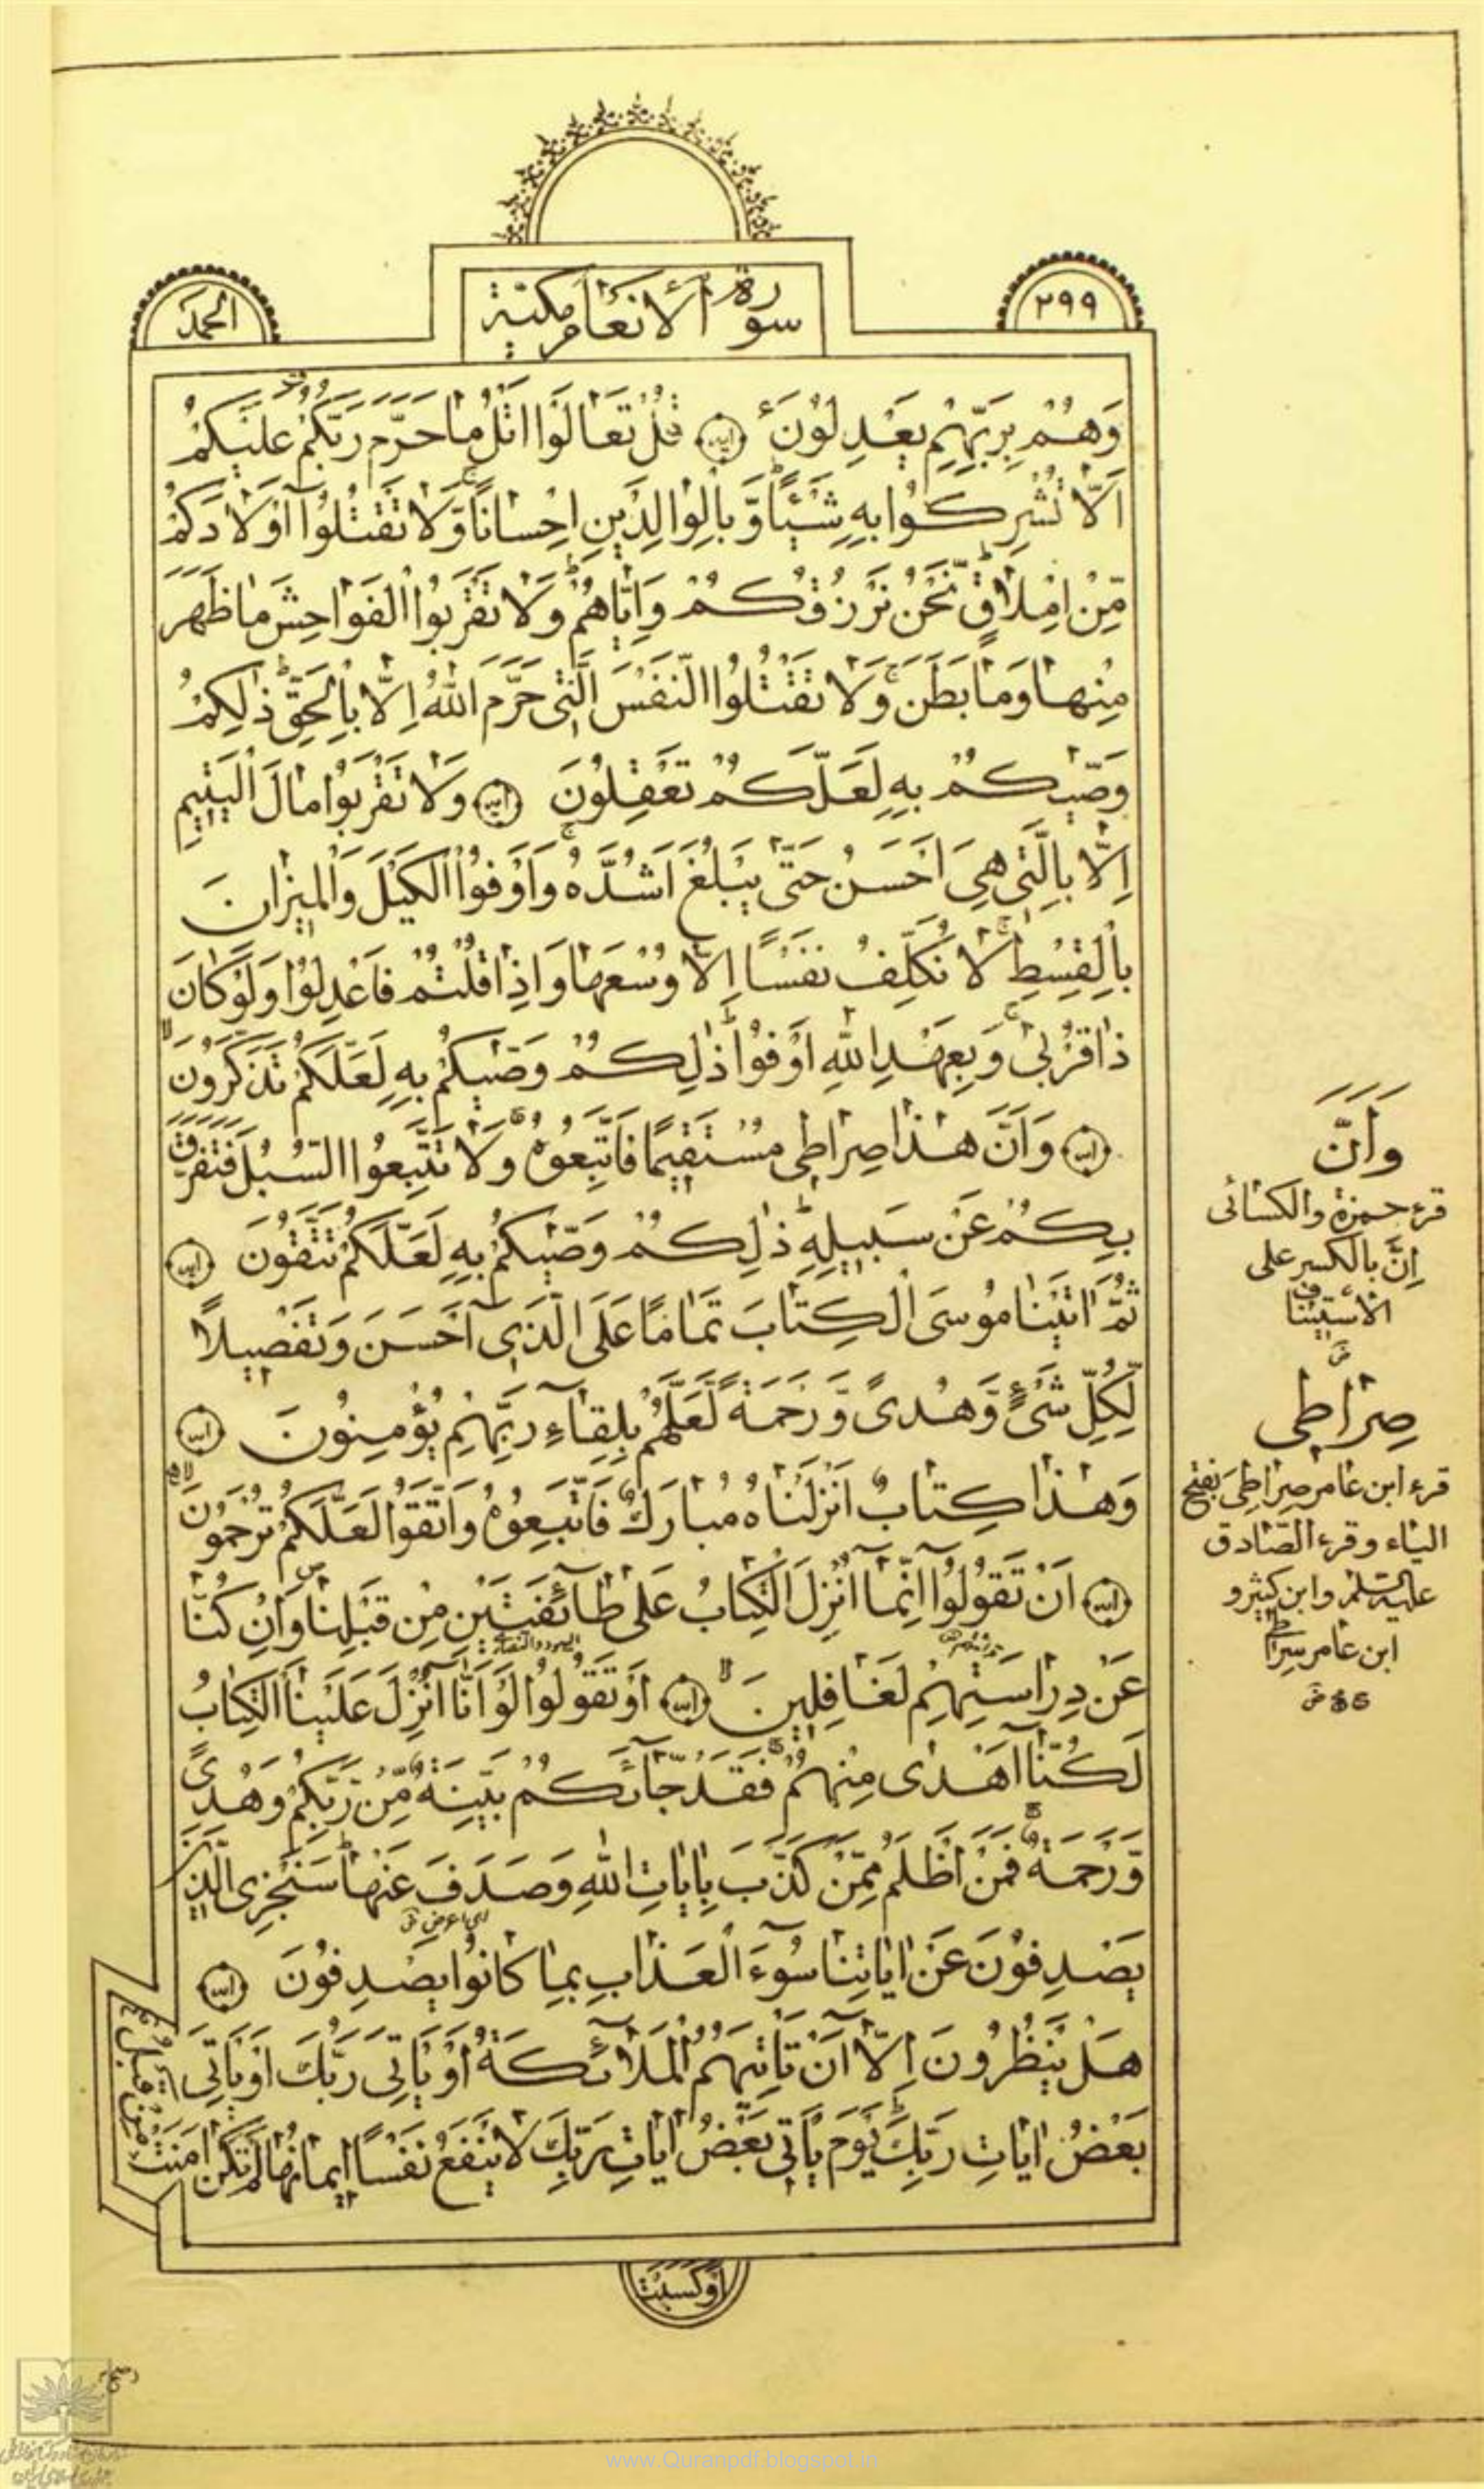 ٢٩٩
سورة الانعام مكية
الحمد
وَهُمْ بِرَبِّهِمْ يَعْدِلُونَ ۝ قُلْ تَعَالَوْا اَتْلُ مَا حَرَّمَ رَبُّكُمْ عَلَيْكُمْ
اَلَّا تُشْرِكُوا بِهِ شَيْئًا وَّبِالْوَالِدَيْنِ اِحْسَانًا وَّلَا تَقْتُلُوا اَوْلَادَكُمْ
مِّنْ اِمْلَاقٍ نَّحْنُ نَرْزُقُكُمْ وَاِيَّاهُمْ وَلَا تَقْرَبُوا الْفَوَاحِشَ مَا ظَهَرَ
مِنْهَا وَمَا بَطَنَ وَلَا تَقْتُلُوا النَّفْسَ الَّتِي حَرَّمَ اللهُ اِلَّا بِالْحَقِّ ذٰلِكُمْ
وَصّٰيكُمْ بِهِ لَعَلَّكُمْ تَعْقِلُونَ ۝ وَلَا تَقْرَبُوا مَالَ الْيَتِيمِ
اِلَّا بِالَّتِي هِيَ اَحْسَنُ حَتّٰى يَبْلُغَ اَشُدَّهُ وَاَوْفُوا الْكَيْلَ وَالْمِيزَانَ
بِالْقِسْطِ لَا نُكَلِّفُ نَفْسًا اِلَّا وُسْعَهَا وَاِذَا قُلْتُمْ فَاعْدِلُوا وَلَوْ كَانَ
ذَا قُرْبٰى وَبِعَهْدِ اللهِ اَوْفُوا ذٰلِكُمْ وَصّٰيكُمْ بِهِ لَعَلَّكُمْ تَذَكَّرُونَ
۝ وَاَنَّ هٰذَا صِرَاطِي مُسْتَقِيمًا فَاتَّبِعُوهُ وَلَا تَتَّبِعُوا السُّبُلَ فَتَفَرَّقَ
بِكُمْ عَنْ سَبِيلِهِ ذٰلِكُمْ وَصّٰيكُمْ بِهِ لَعَلَّكُمْ تَتَّقُونَ ۝
ثُمَّ اٰتَيْنَا مُوسَى الْكِتَابَ تَمَامًا عَلَى الَّذِي اَحْسَنَ وَتَفْصِيلًا
لِّكُلِّ شَيْءٍ وَّهُدىً وَّرَحْمَةً لَّعَلَّهُمْ بِلِقَاءِ رَبِّهِمْ يُؤْمِنُونَ ۝
وَهٰذَا كِتَابٌ اَنْزَلْنَاهُ مُبَارَكٌ فَاتَّبِعُوهُ وَاتَّقُوا لَعَلَّكُمْ تُرْحَمُونَ
۝ اَنْ تَقُولُوا اِنَّمَا اُنْزِلَ الْكِتَابُ عَلٰى طَائِفَتَيْنِ مِنْ قَبْلِنَا وَاِنْ كُنَّا
عَنْ دِرَاسَتِهِمْ لَغَافِلِينَ ۝ اَوْ تَقُولُوا لَوْ اَنَّا اُنْزِلَ عَلَيْنَا الْكِتَابُ
لَكُنَّا اَهْدٰى مِنْهُمْ فَقَدْ جَاءَكُمْ بَيِّنَةٌ مِّنْ رَّبِّكُمْ وَهُدىً
وَّرَحْمَةٌ فَمَنْ اَظْلَمُ مِمَّنْ كَذَّبَ بِاٰيَاتِ اللهِ وَصَدَفَ عَنْهَا سَنَجْزِي الَّذِينَ
يَصْدِفُونَ عَنْ اٰيَاتِنَا سُوءَ الْعَذَابِ بِمَا كَانُوا يَصْدِفُونَ ۝
هَلْ يَنْظُرُونَ اِلَّا اَنْ تَاْتِيَهُمُ الْمَلَائِكَةُ اَوْ يَاْتِيَ رَبُّكَ اَوْ يَاْتِيَ
بَعْضُ اٰيَاتِ رَبِّكَ يَوْمَ يَاْتِي بَعْضُ اٰيَاتِ رَبِّكَ لَا يَنْفَعُ نَفْسًا اِيمَانُهَا لَمْ تَكُنْ اٰمَنَتْ
مِنْ قَبْلُ
اَوْ كَسَبَتْ
وَاَنَّ
قرء حمزة والكسائى
اِنَّ بالكسر على
الاستيناف
صِرَاطِي
قرء ابن عامر صِرَاطِيَ بفتح
الياء وقرء الصادق
عليه السلام وابن كثير و
ابن عامر سِرَاطِي
www.Quranpdf.blogspot.in